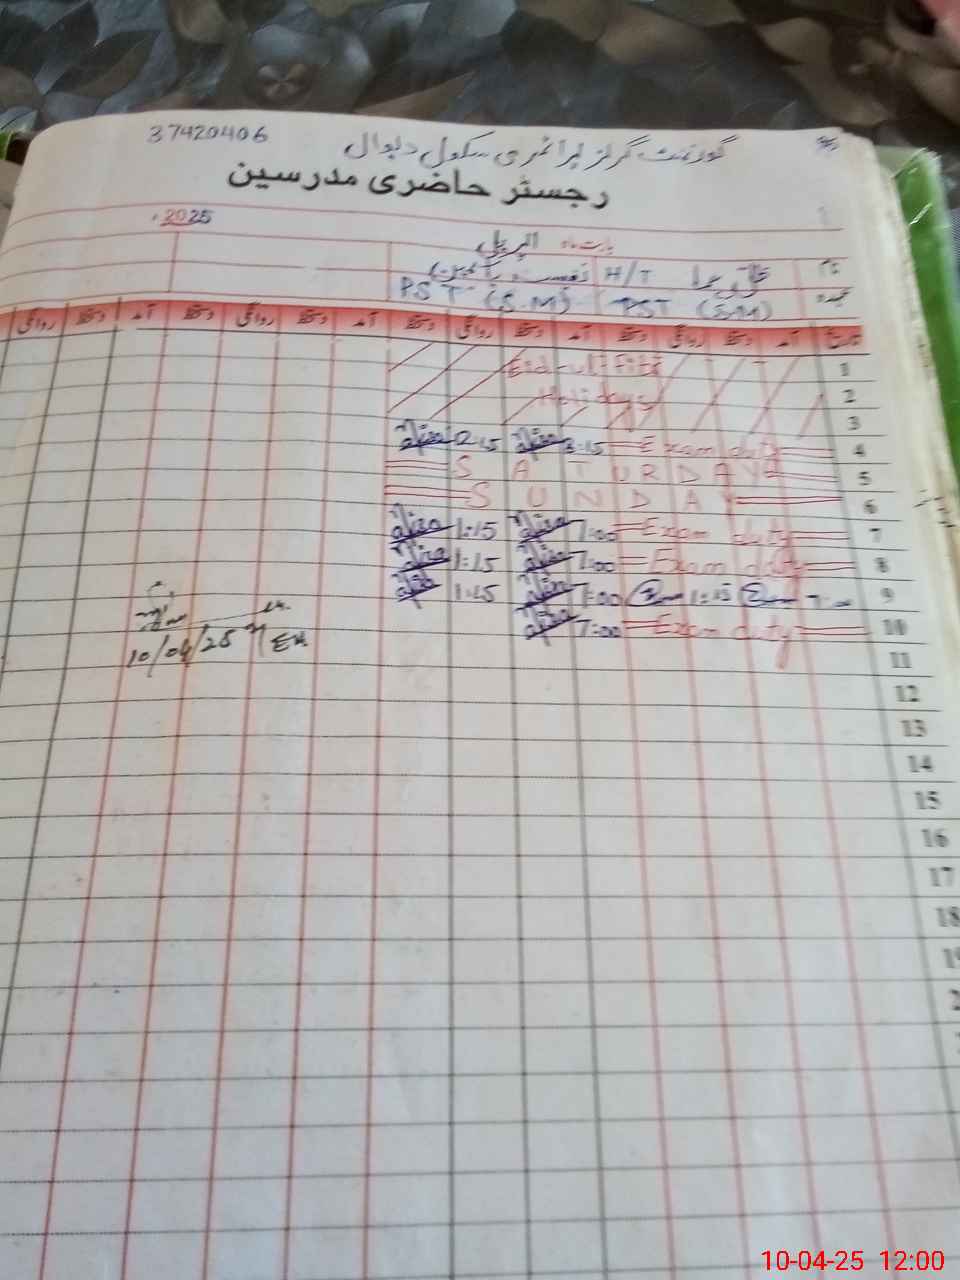 37420406 گورنمنٹ گرلز پرائمری سکول دلوال
رجسٹر حاضری مدرسین
بابت ماہ اپریل 2025ء
نام H/T
عہدہ PST (S.M) PST (S.M)
تاریخ آمد دستخط روانگی دستخط آمد دستخط روانگی دستخط آمد دستخط روانگی دستخط آمد دستخط روانگی
1 Eid-ul-Fitr
2 Holidays
3
4 Exam duty 8:15 12:15
5 SATURDAY
6 SUNDAY
7 Exam duty 7:00 1:15
8 Exam duty 7:00 1:15
9 7:00 1:15 7:00 1:15
10 Exam duty 7:00
10/04/25
11
12
13
14
15
16
17
18
10-04-25 12:00